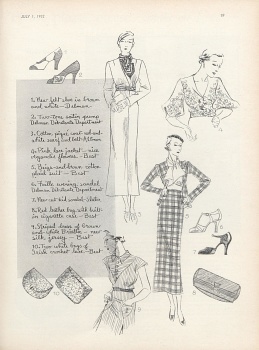 JULY 1, 1932
59
1. New felt shoe in brown
and white—Delman
2. Two-tone satin pump
Delman Debutante Department
3. Cotton piqué coat, red-and-
white scarf and belt—Altman
4. Pink lace jacket—nice
organdie flowers.—Best
5. Beige-and-brown cotton
plaid suit—Best
6. Faille evening sandal
Delman Debutante Department
7. New cut kid sandal—
8. Red leather bag with built-
in cigarette case—Best
9. Striped dress of brown-
and-white
silk jersey—Best
10. Two white bags of
Irish crochet lace.—Best